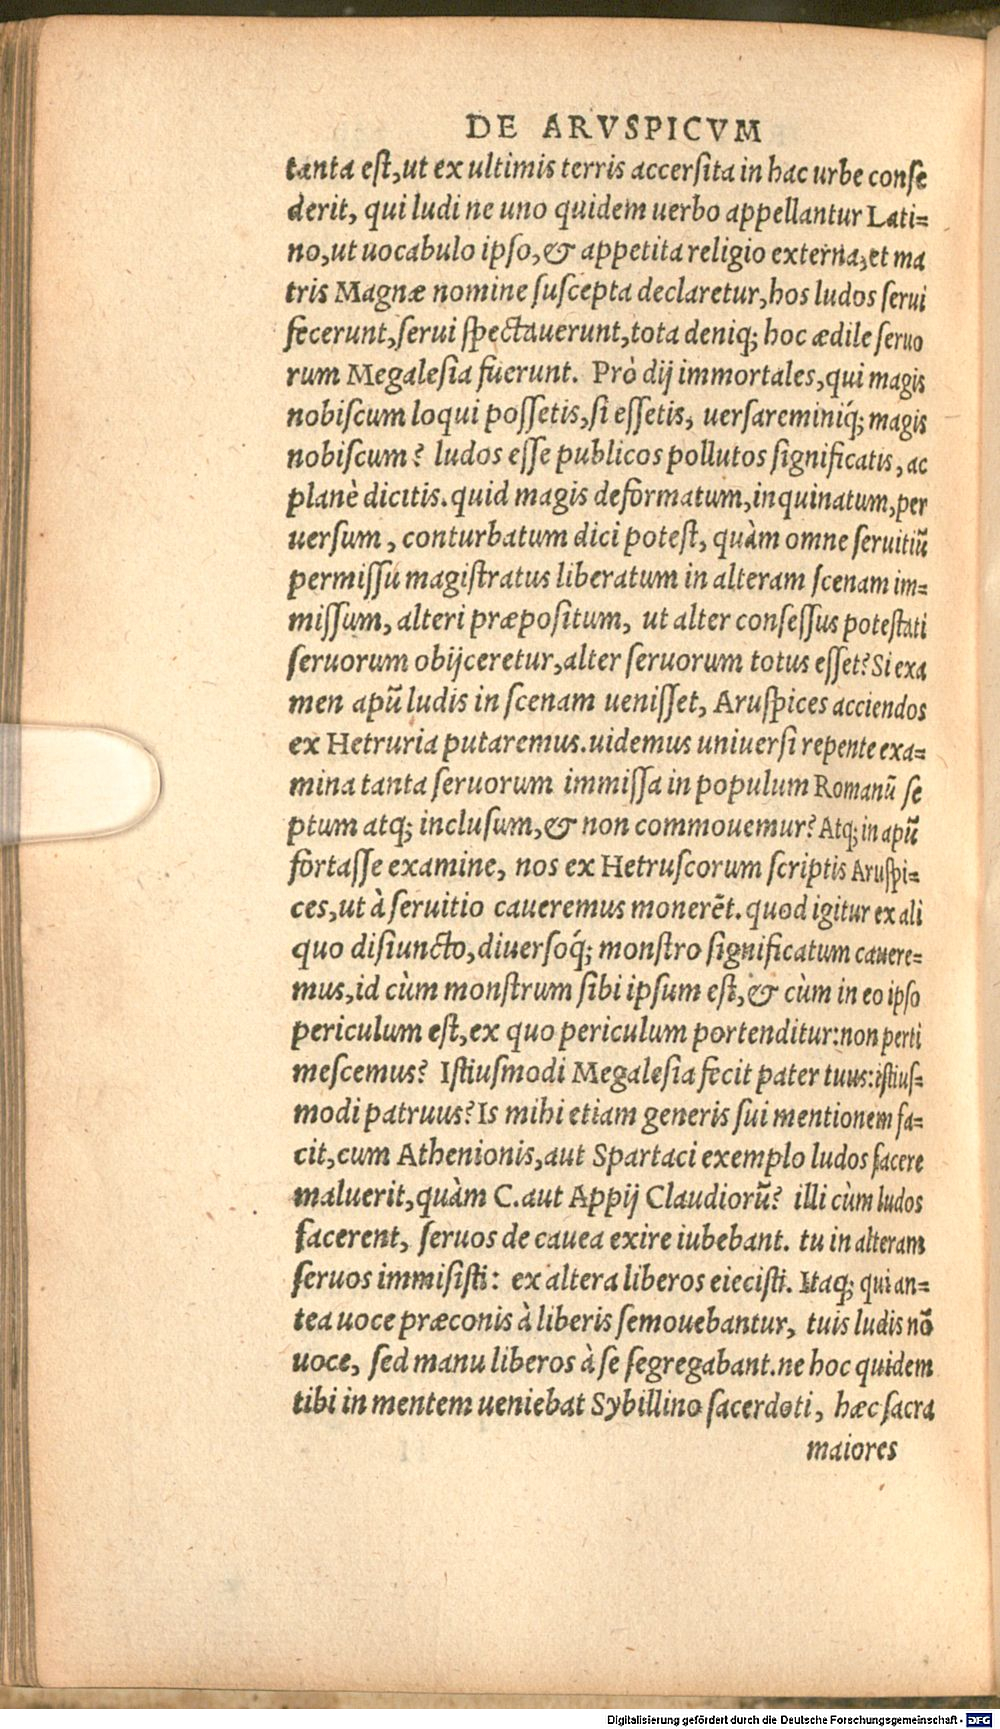 DE ARVSPICVM
tanta est,ut ex ultimis terris accersita in hac urbe conse
derit, qui ludi ne uno quidem uerbo appellantur Lati=
no,ut uocabulo ipso,& appetita religio externa,et ma
tris Magnæ nomine suscepta declaretur,hos ludos serui
fecerunt,serui spectauerunt,tota deniq; hoc ædile seruo
rum Megalesia fuerunt. Prò dij immortales,qui magis
nobiscum loqui possetis,si essetis, uersareminiq́; magis
nobiscum? ludos esse publicos pollutos significatis, ac
planè dicitis.quid magis deformatum,inquinatum,per
uersum, conturbatum dici potest, quàm omne seruitiū
permissu magistratus liberatum in alteram scenam im=
missum, alteri præpositum, ut alter consessus potestati
seruorum obijceretur,alter seruorum totus esset? Si exa
men apū ludis in scenam uenisset, Aruspices acciendos
ex Hetruria putaremus.uidemus uniuersi repente exa=
mina tanta seruorum immissa in populum Romanū se
ptum atq; inclusum,& non commouemur? Atq; in apū
fortasse examine, nos ex Hetruscorum scriptis Aruspi=
ces,ut à seruitio caueremus monerēt. quod igitur ex ali
quo disiuncto,diuersoq́; monstro significatum cauere=
mus,id cùm monstrum sibi ipsum est,& cùm in eo ipso
periculum est,ex quo periculum portenditur:non perti
mescemus? Istiusmodi Megalesia fecit pater tuus:istius=
modi patruus? Is mihi etiam generis sui mentionem fa=
cit,cum Athenionis,aut Spartaci exemplo ludos facere
maluerit,quàm C.aut Appij Claudiorū? illi cùm ludos
facerent, seruos de cauea exire iubebant. tu in alteram
seruos immisisti: ex altera liberos eiecisti. Itaq; qui an=
tea uoce præconis à liberis semouebantur, tuis ludis nō
uoce, sed manu liberos à se segregabant.ne hoc quidem
tibi in mentem ueniebat Sybillino sacerdoti, hæc sacra
maiores
Digitalisierung gefördert durch die Deutsche Forschungsgemeinschaft - DFG